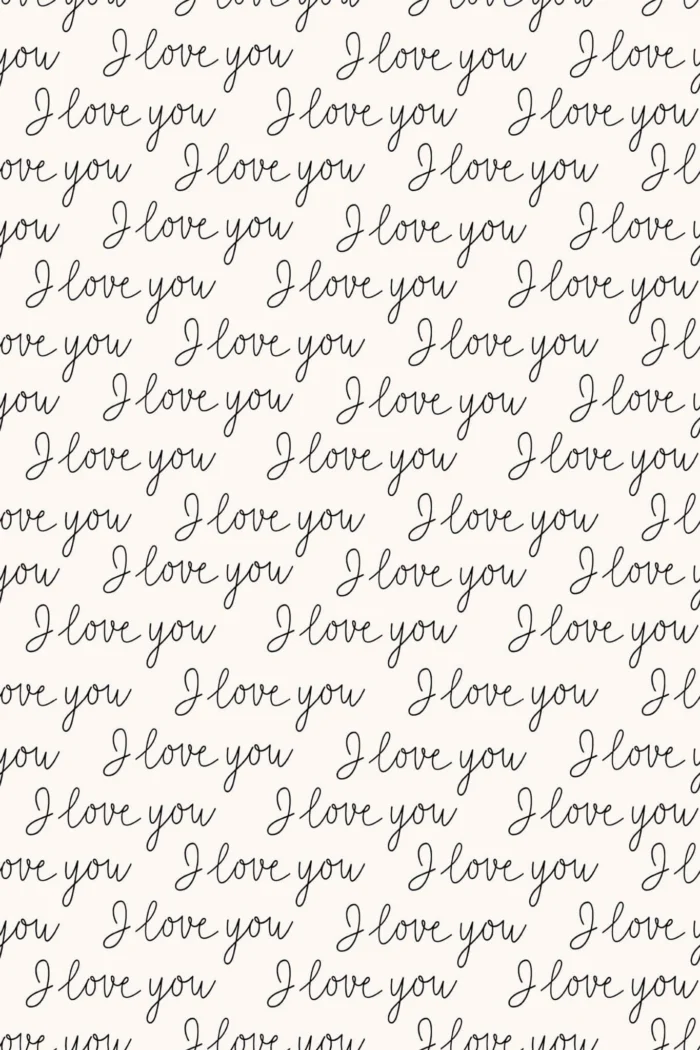 you I love you I love you I love y
I love you I love you I love you
ove you I love you I love you I l
you I love you I love you I love y
I love you I love you I love you
ove you I love you I love you I l
you I love you I love you I love y
I love you I love you I love you
ove you I love you I love you I l
you I love you I love you I love y
I love you I love you I love you
ove you I love you I love you I l
you I love you I love you I love y
I love you I love you I love you
ove you I love you I love you I l
you I love you I love you I love y
I love you I love you I love you
ove you I love you I love you I l